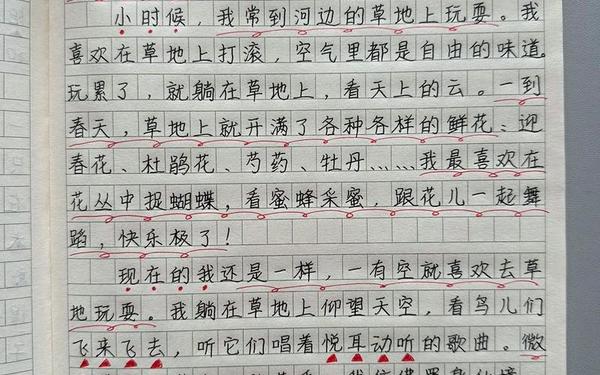 小时候，我常到河边的草地上玩耍。我
喜欢在草地上打滚，空气里都是自由的味道。
玩累了，就躺在草地上，看天上的云。一到
春天，草地上就开满了各种各样的鲜花：迎
春花、杜鹃花、芍药、牡丹……我最喜欢在
花丛中捉蝴蝶，看蜜蜂采蜜，跟花儿一起舞
蹈，快乐极了！
现在的我还是一样，一有空就喜欢去草
地玩耍。我躺在草地上仰望天空，看鸟儿们
飞来飞去，听它们唱着悦耳动听的歌曲。微